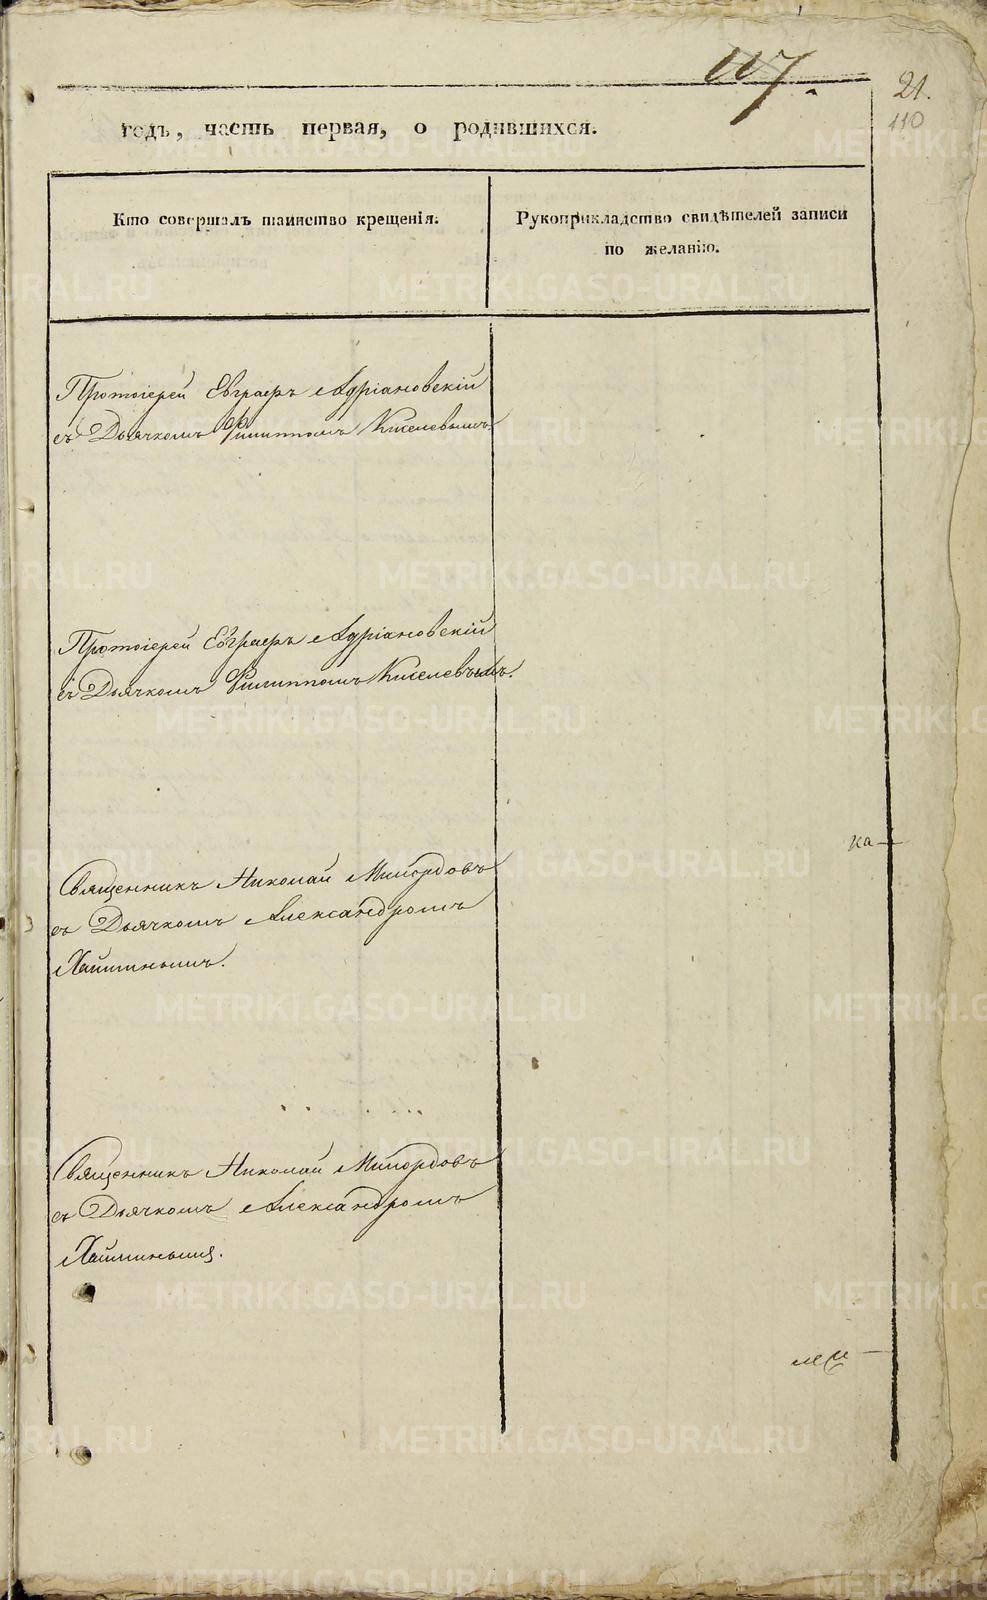 117.
21.
110
годъ, часть первая, о родившихся.
Кто совершалъ таинство крещенія.
Рукоприкладство свидѣтелей записи
по желанію.
Протоіерей Евграфъ Адріановскій
съ Дьячкомъ Филиппомъ Киселевымъ.
Протоіерей Евграфъ Адріановскій
съ Дьячкомъ Филиппомъ Киселевымъ.
ка
Священникъ Николай Милордовъ
съ Дьячкомъ Александромъ
Хайминымъ.
Священникъ Николай Милордовъ
съ Дьячкомъ Александромъ
Хайминымъ.
METRIKI.GASO-URAL.RU